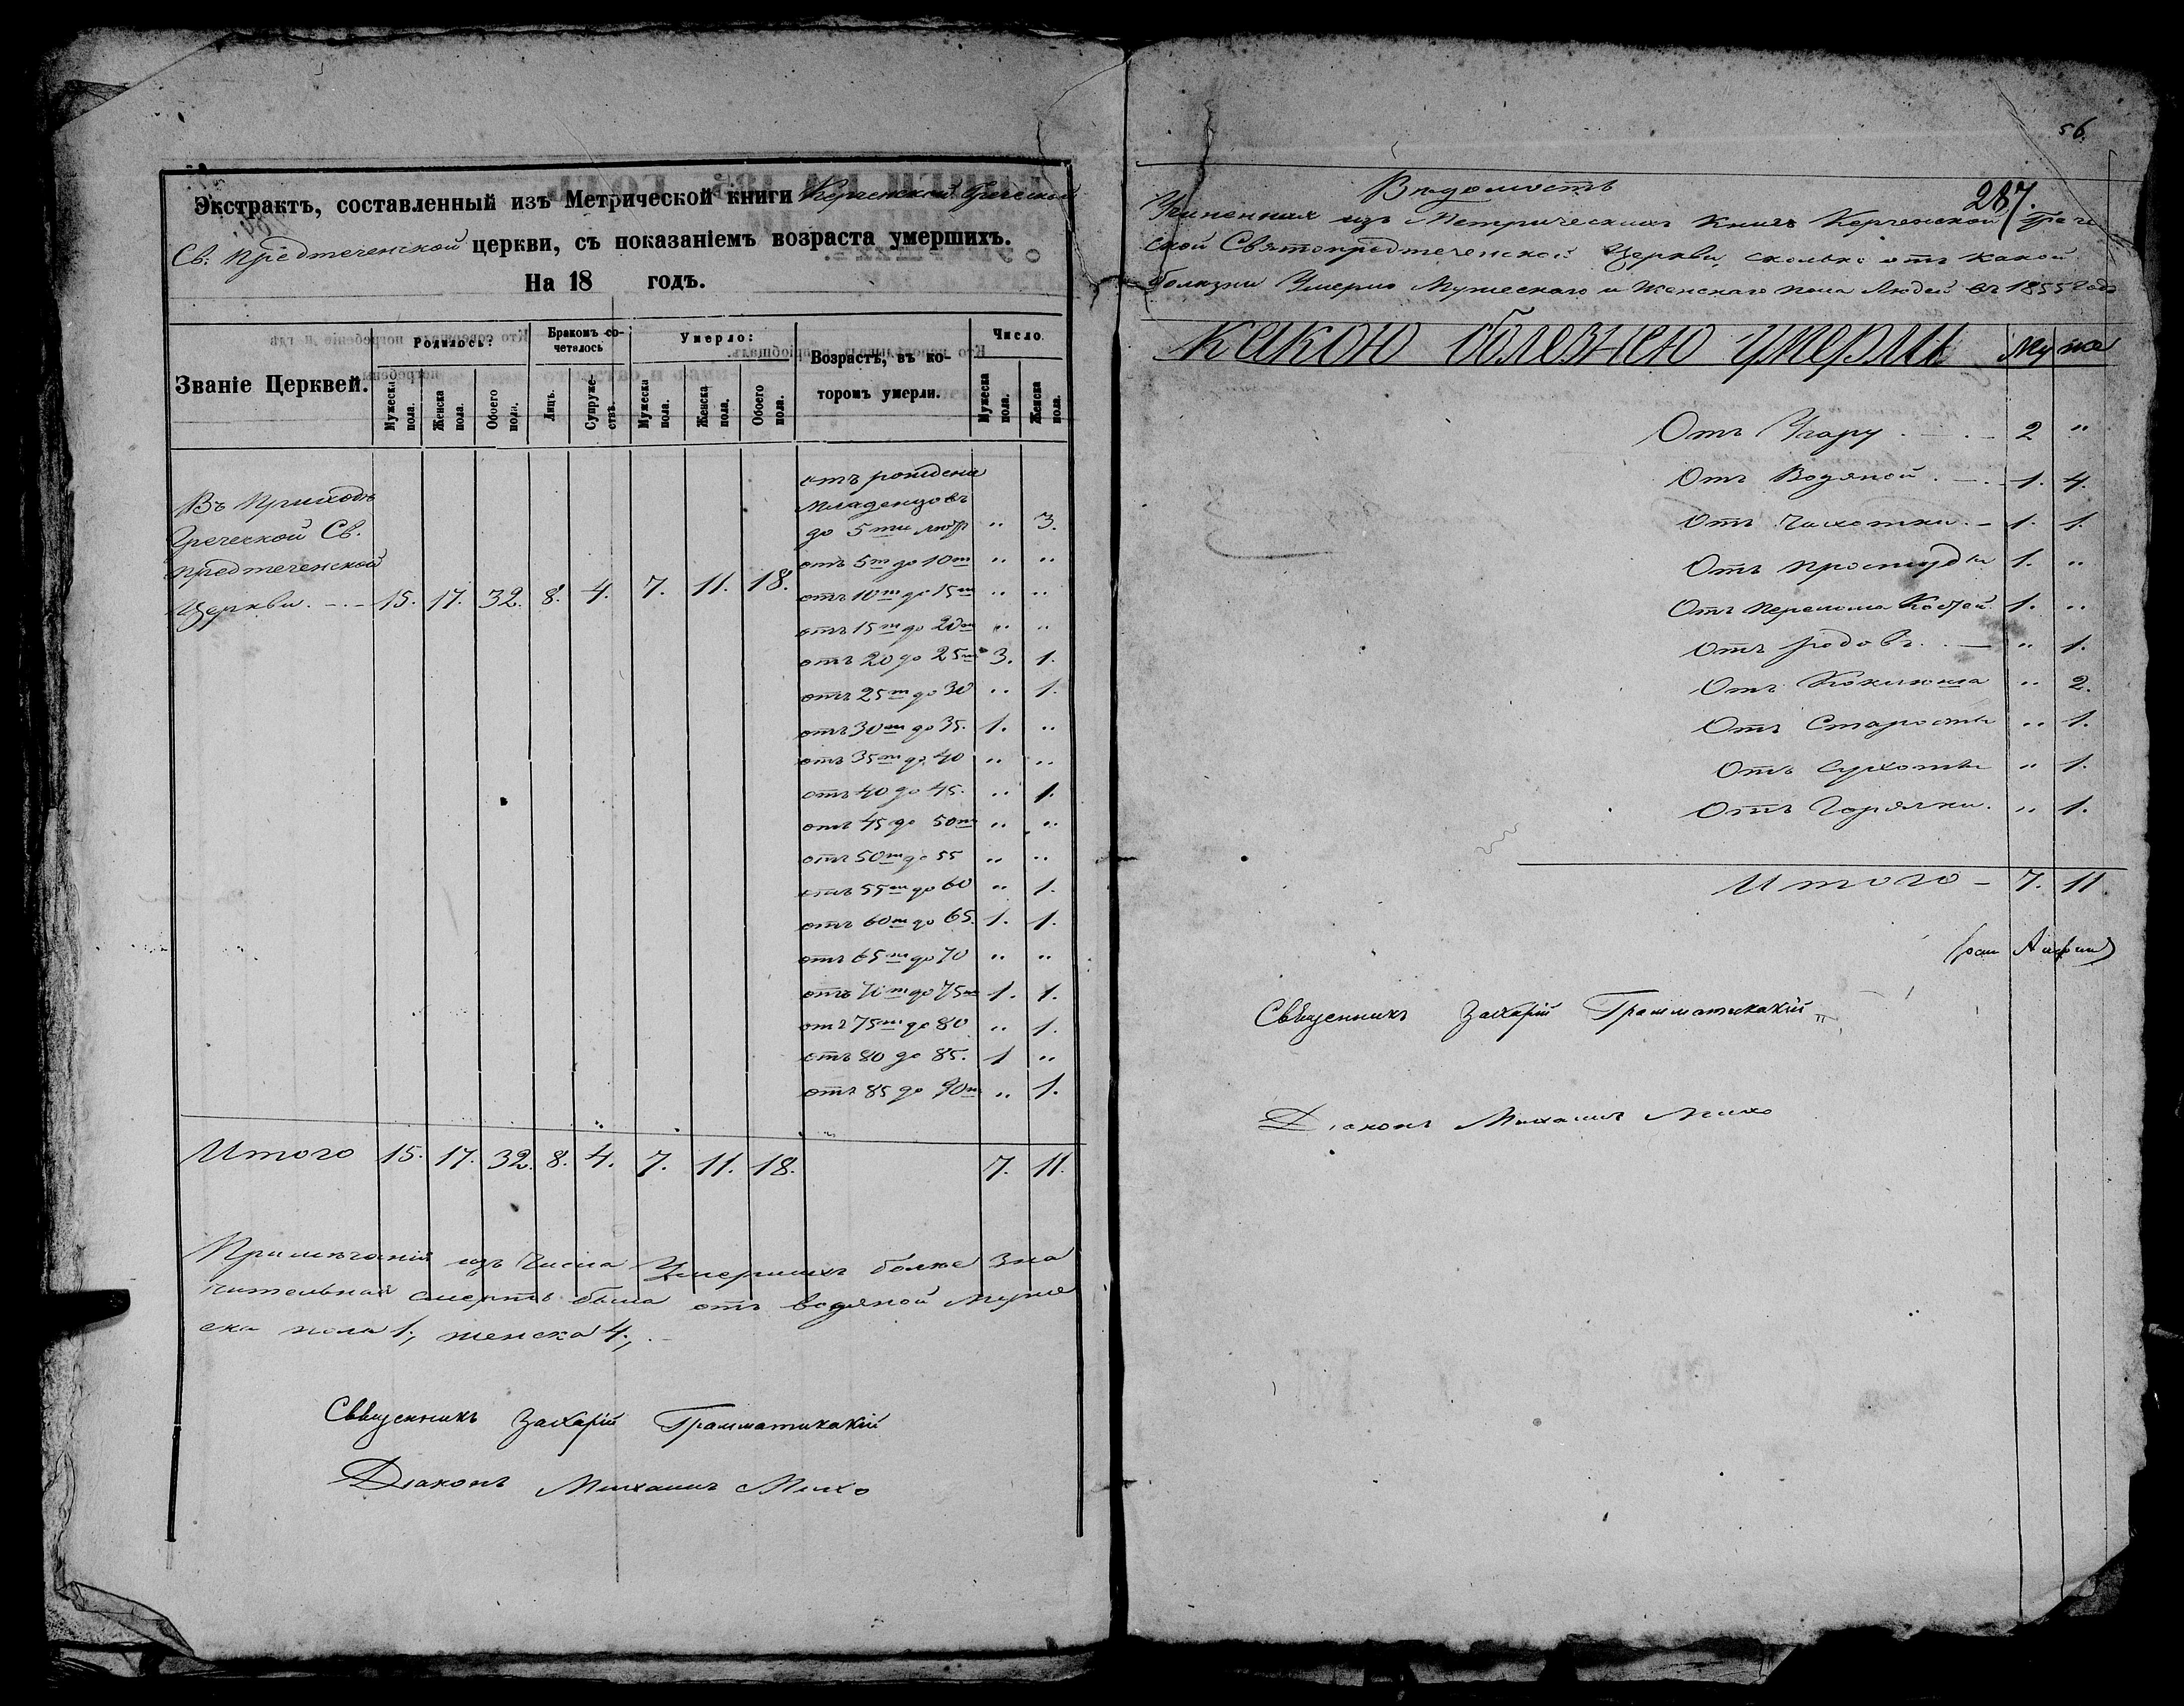 Экстрактъ, составленный изъ Метрической книги Керченской Греческой
Св. Предтеченской церкви, съ показаніемъ возраста умершихъ.
На 18 годъ.
Званіе Церквей.
Родилось:
Мужеска пола.
Женска пола.
Обоего пола.
Бракомъ со-
четалось
Лицъ.
Супруже-
ствъ.
Умерло:
Мужеска пола.
Женска пола.
Обоего пола.
Возрастъ, въ ко-
торомъ умерли.
Число.
Мужеска пола.
Женска пола.
Въ Приходѣ
Греческой Св.
Предтеченской
Церкви. 15. 17. 32. 8. 4. 7. 11. 18.
отъ рожденія
младенцовъ
до 5ти лѣтъ " 3.
отъ 5т до 10т " "
отъ 10т до 15т " "
отъ 15т до 20т " "
отъ 20 до 25т 3. 1.
отъ 25т до 30 " 1.
отъ 30т до 35. 1. "
отъ 35т до 40 " "
отъ 40 до 45. " 1.
отъ 45 до 50т " "
отъ 50т до 55 " "
отъ 55т до 60 " 1.
отъ 60т до 65. 1. 1.
отъ 65т до 70 " "
отъ 70т до 75т 1. 1.
отъ 75т до 80 " 1.
отъ 80 до 85. 1 "
отъ 85 до 90т " 1.
Итого 15. 17. 32. 8. 4. 7. 11. 18. 7. 11.
Примѣчаніе изъ числа Умершихъ более зна
чительная смерть была отъ водяной муже
ска пола 1, женска 4,
Священникъ Захарій Грамматикакій
Діаконъ Михаилъ Михо
56.
287.
Вѣдомость
Учиненная изъ Метрическихъ книгъ Керченской Грече
ской Святопредтеченской Церкви, сколько отъ какой
болѣзни Умерло Мужескаго и Женскаго пола Людей въ 1855 Годѣ
какою болезнею умерли Му же
Отъ Угару 2 "
Отъ Водяной 1. 4.
Отъ Чахотки 1. 1.
Отъ простуды 1. "
Отъ перелома Костей 1. "
Отъ родовъ " 1.
Отъ Коклюша " 2.
Отъ Старости " 1.
Отъ Сухоты " 1.
Отъ Горячки. " 1.
Итого 7. 11
Священникъ Захарій Грамматикакій
Діаконъ Михаилъ Михо